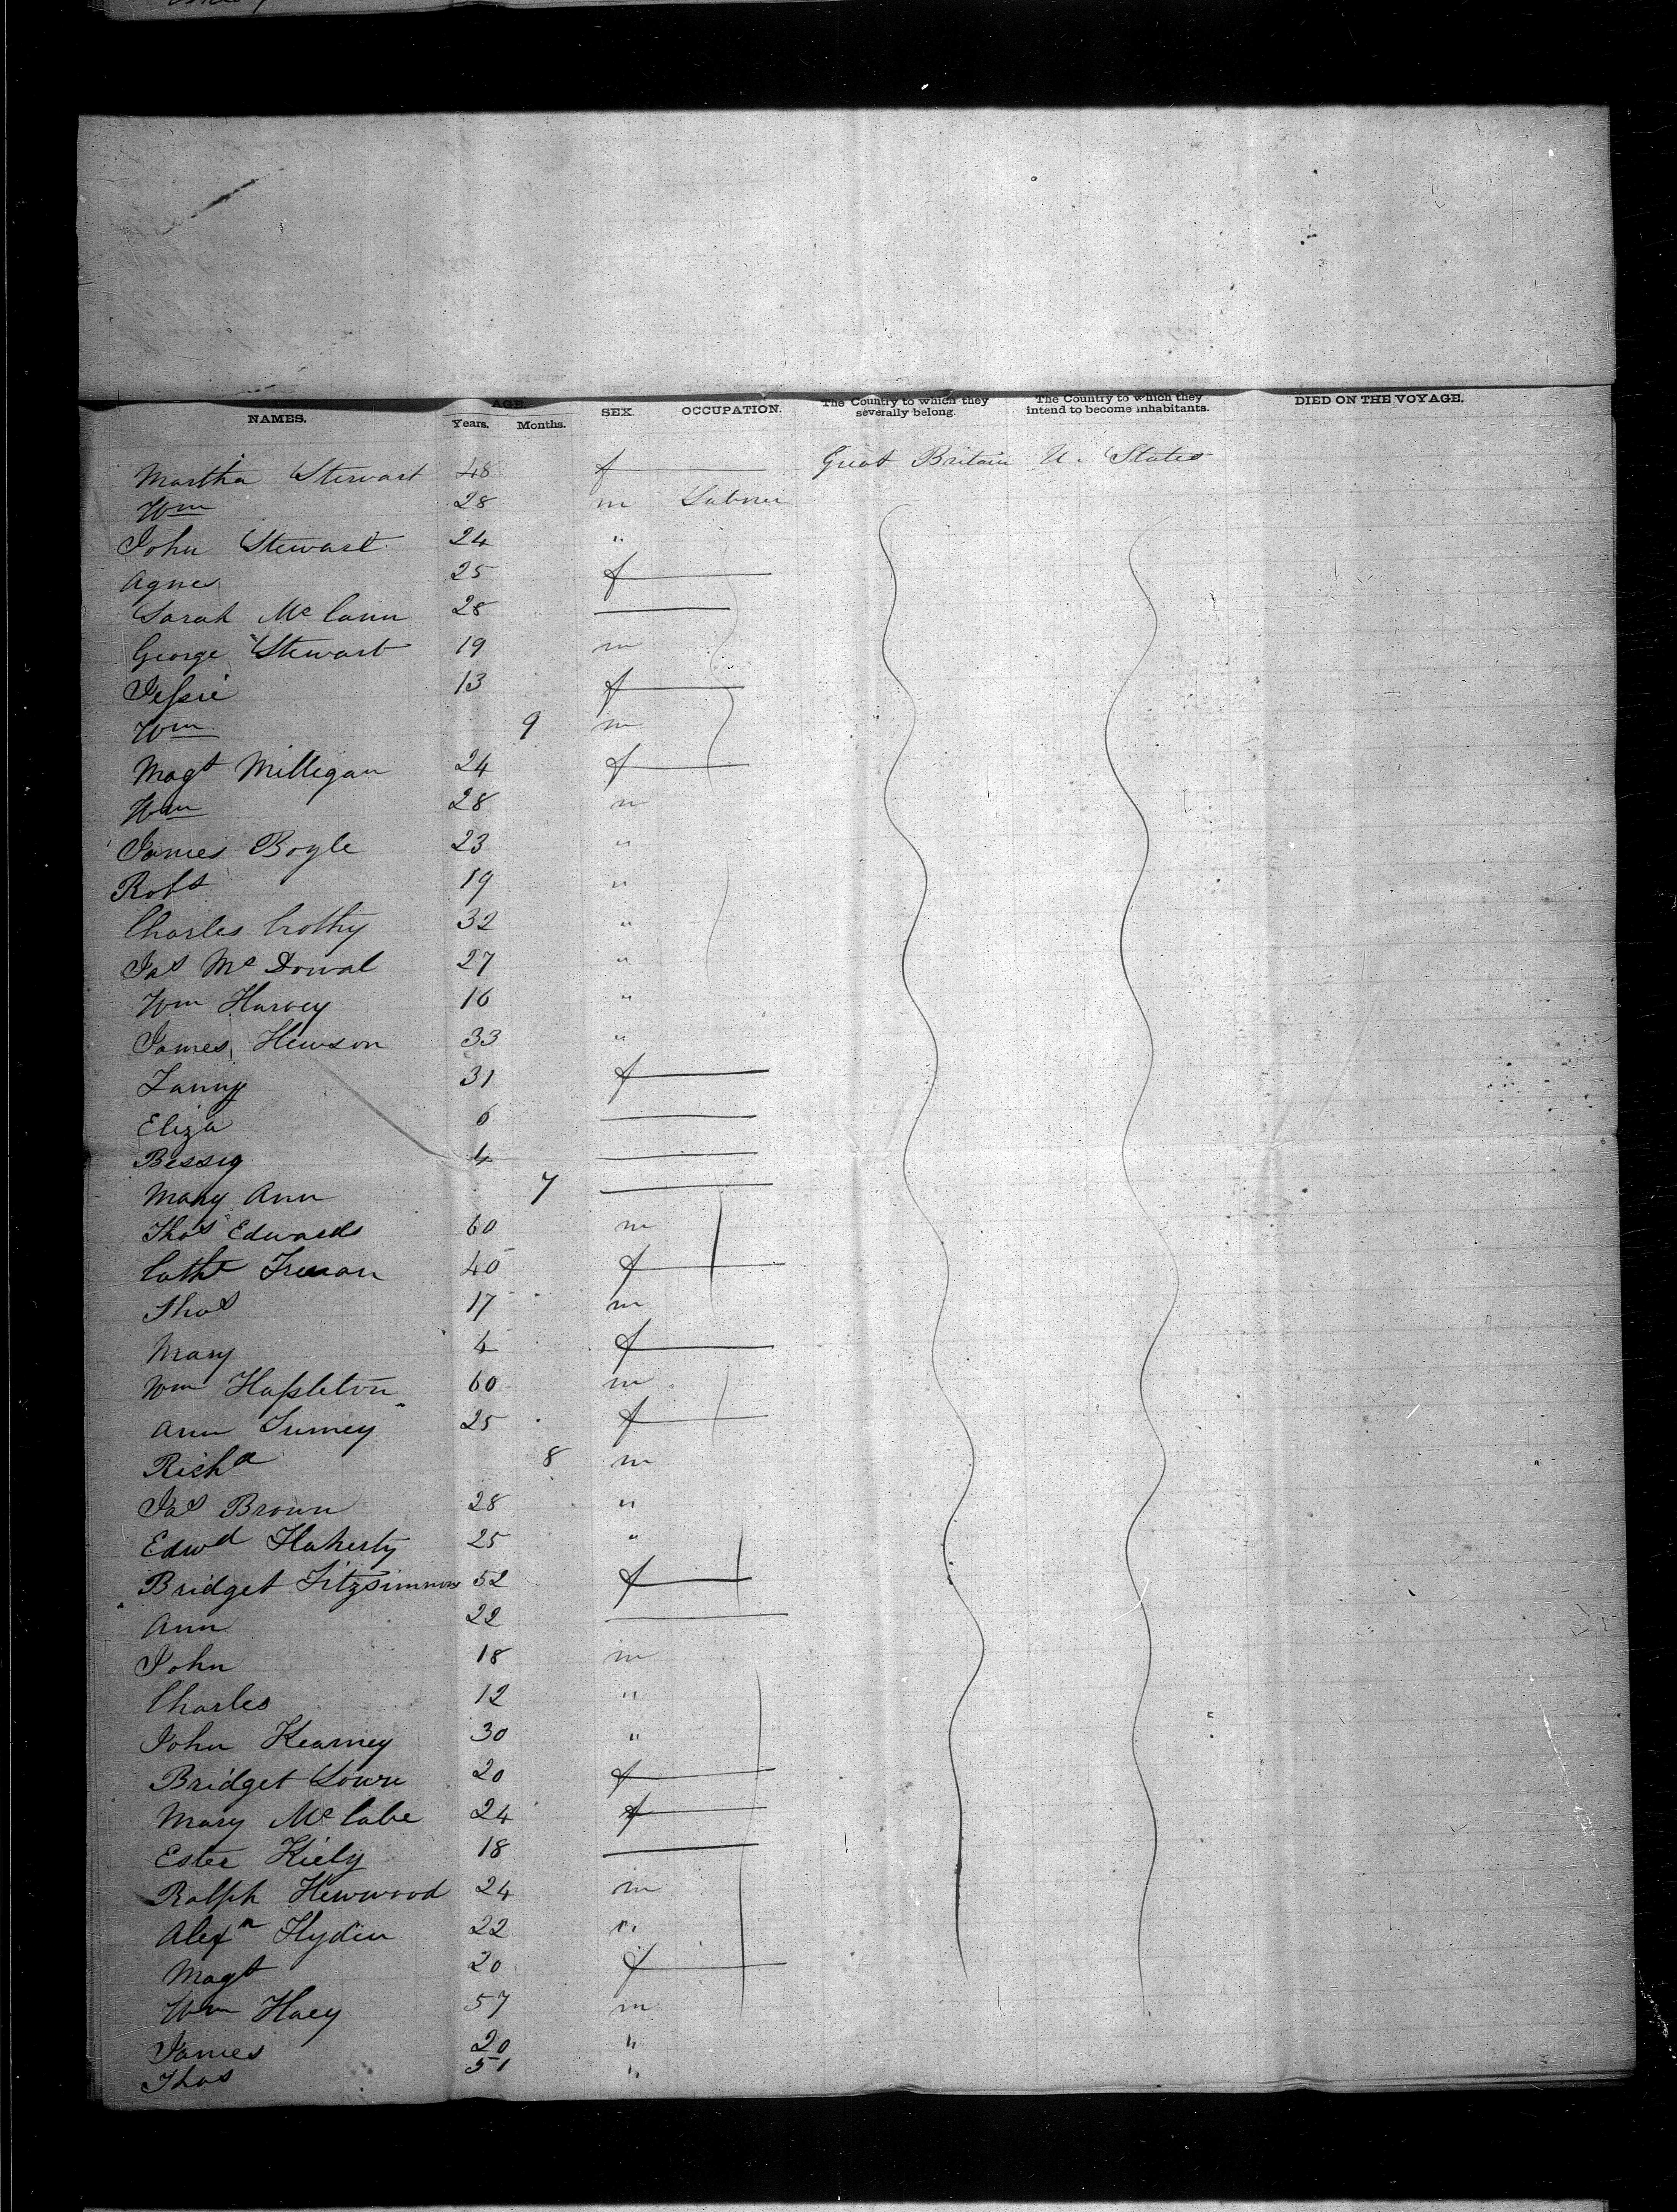 NAMES. AGE. Years. Months. SEX. OCCUPATION. The Country to which they severally belong. The Country to which they intend to become inhabitants. DIED ON THE VOYAGE.
Martha Stewart 48 f Great Britain U. States
Wm 28 m Labour
John Stewart 24 "
Agnes 25 f
Sarah Mc Cann 28
George Stewart 19 m
Jessie 13 f
Wm 9 m
Magt Milligan 24 f
Wm 28 m
James Boyle 23 "
Robt 19 "
Charles Crothy 32 "
Jas Mc Dowal 27 "
Wm Harvey 16 "
James Hewson 33 "
Fanny 31 f
Eliza 6
Bessey 4
Mary Ann 7
Thos Edwards 60 m
Cathe 40 f
Thos 17 m
Mary 4 f
Wm Hassleton 60 m
Ann 25 f
Richd 8 m
Jas Brown 28 "
Edwd Flaherty 25 "
Bridget Fitzsimmons 52 f
Ann 22
John 18 m
Charles 12 "
John Kearney 30 "
Bridget 20 f
Mary Mc Cabe 24 f
Ester Kiely 18
Ralph Hewwood 24 m
Alexr 22 "
Magt 20 f
Wm Hoey 57 m
James 20 "
Thos 51 "